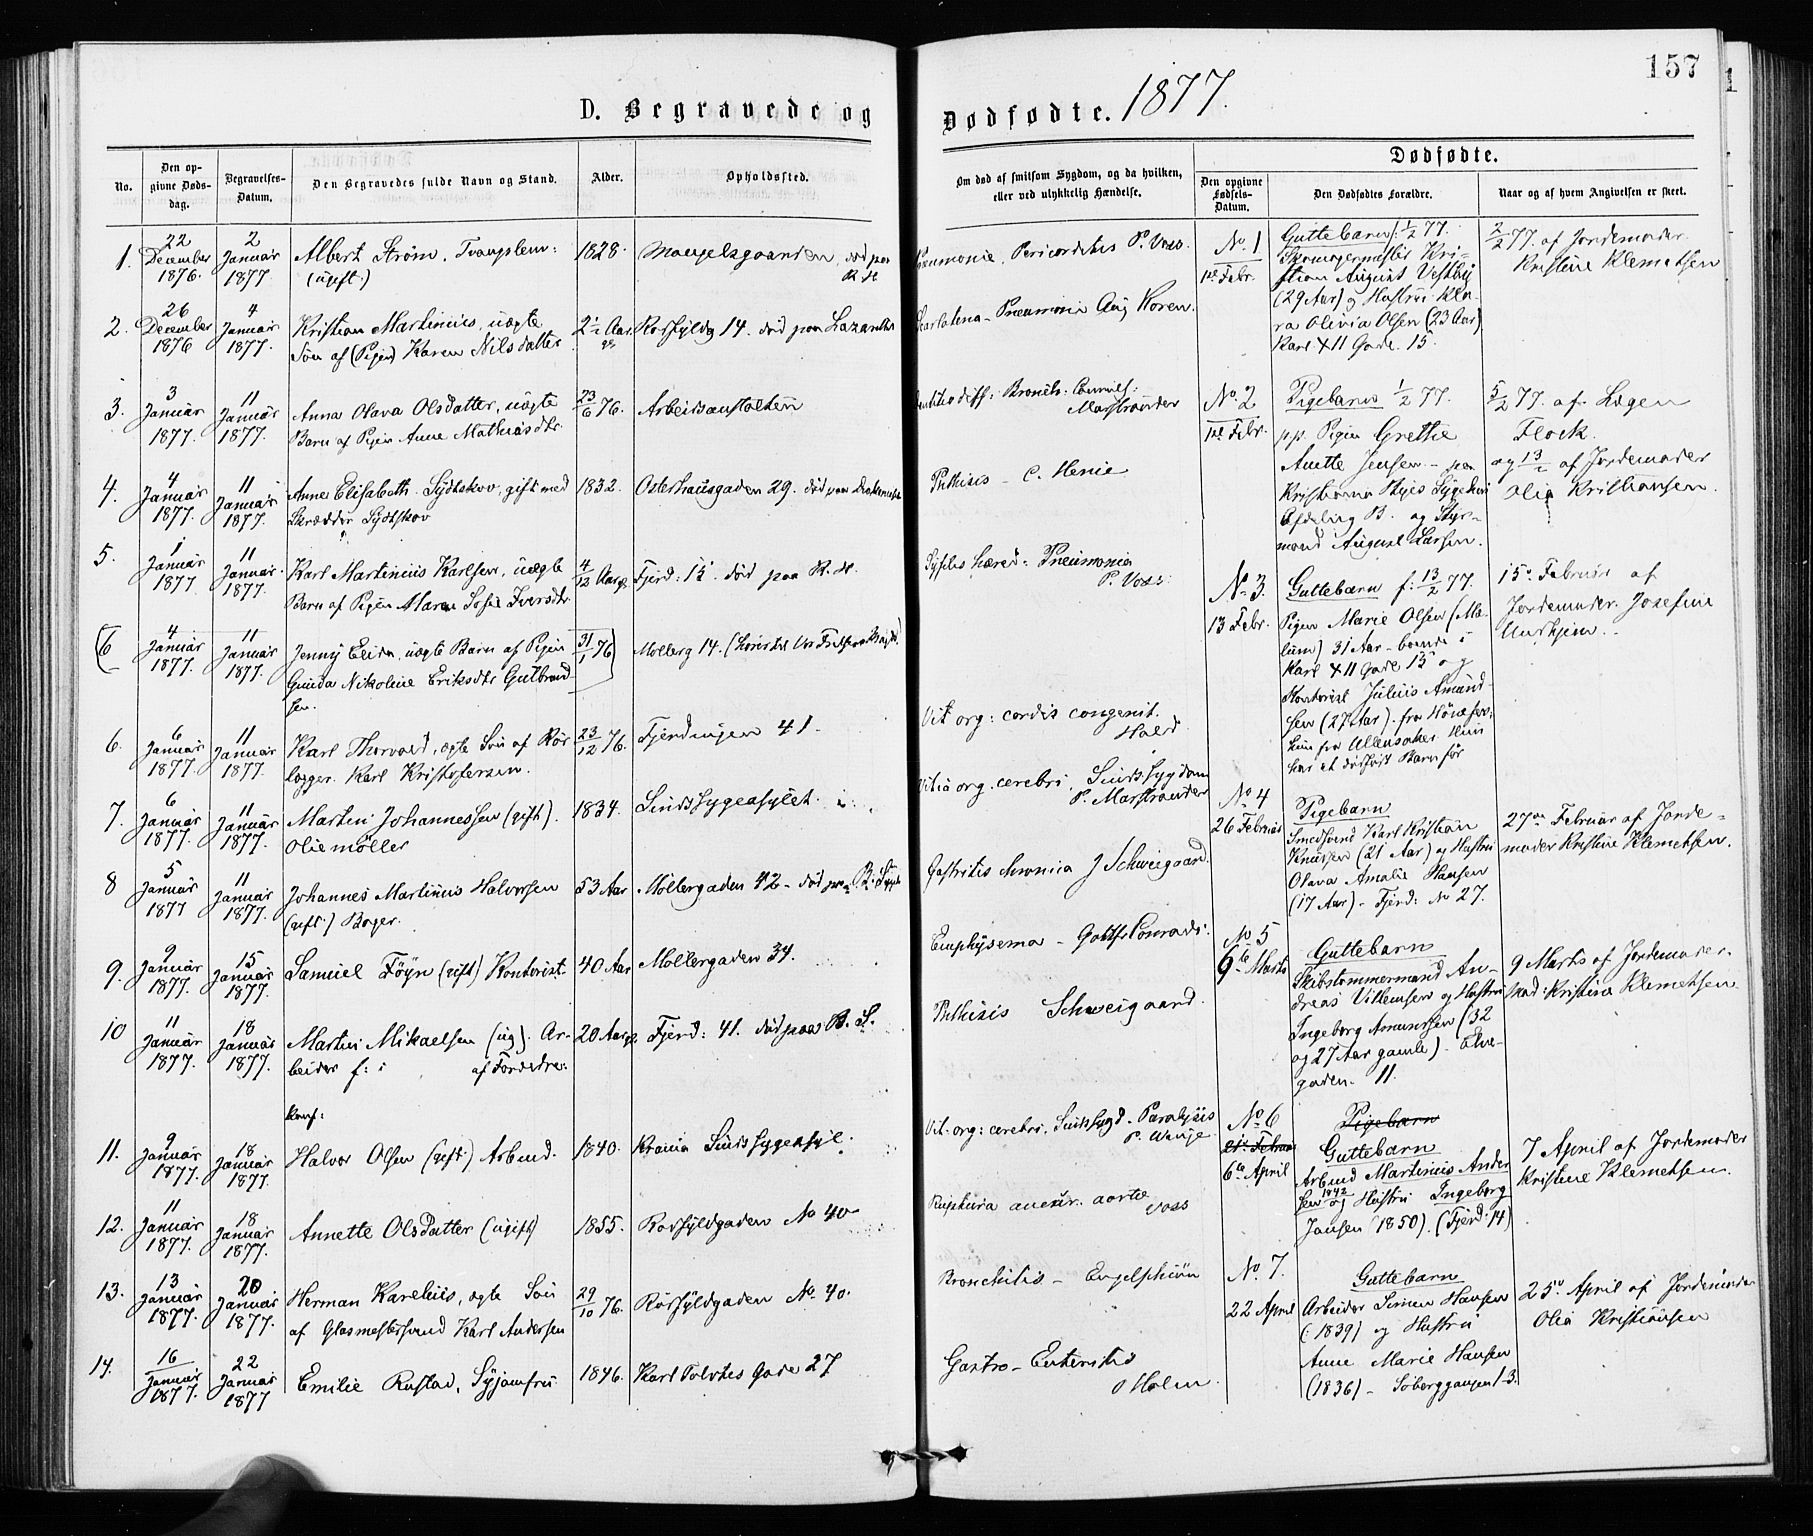 157
D. Begravede og Dødfødte. 1877.
No.
Den opgivne Dødsdag.
Begravelses-Datum.
Den Begravedes fulde Navn og Stand.
Alder.
Opholdssted.
Om død af smitsom Sygdom, og da hvilken, eller ved ulykkelig Hændelse.
Dødfødte.
Den opgivne Fødsels-Datum.
Den Dødfødtes Forældre.
Naar og af hvem Angivelsen er skeet.
1. 22 December 1876. 2 Januar 1877 Albert Strøm,
(ugift.) 1828. død paa R. H
Pericarditis P. Voss.
2. 26 December 1876 4 Januar 1877. Kristian Martinius, uægte
Søn af (Pigen) Karen Nilsdatter 2 1/2 Aar 14. død paa Lazarethet
Scarlatina - Pneumonia Aug Koren.
3. 3 Januar 1877. 11 Januar 1877. Anna Olava Olsdatter, uægte
Barn af Pigen Anne Mathiasdtr. 23/6 76. Arbeidsanstalten
Marstrander
4. 4 Januar 1877. 11 Januar 1877. Anne Elisabeth Sydtskov, gift med
Skrædder Sydtskov 1832. Osterhausgaden 29. død paa
Phthisis - C. Henie
5. 1 Januar 1877 11 Januar 1877. Karl Martinius Karlsen, uægte
Barn af Pigen Maren Sofie Iversdtr. 4/12 Aar Fjerd: 15. død paa R. H.
Pneumonia
P. Voss.
(6 4 Januar 1877. 11 Januar 1877. Jenny Elida, uægte Barn af Pigen
Gunda Nikoline Eriksdtr Gulbrandsen. 31/1 76) Møllerg 14.
6. 6 Januar 1877. 11 Januar 1877. Karl Thorvald, ægte Søn af Rørlægger. Karl Kristofersen. 23/12 76. Fjerdingen 41.
Vit org: cordis congenit.
Hald
7. 6 Januar 1877. 11 Januar 1877. Martin Johannessen (gift).
Oliemøller 1834. Sindssygeasylet.
Vitia org. cerebri, Sindssygdom
P. Marstrander
8 5 Januar 1877 11 Januar 1877. Johannes Martinus Halvorsen
(gift.) Bager. 53 Aar Møllergaden 42 - død paa
Gastritis chronica J Schweigaard.
9. 9 Januar 1877. 15 Januar 1877. Samuel Føyn (gift) Kontorist. 40 Aar Møllergaden 34.
Emphysema - Gottfr Conradi:
10 11 Januar 1877. 18 Januar 1877. Martin Mikaelsen (ug). Arbeider f: i 20 Aar Fjerd: 41. død paa B. S.
Phthisis Schweigaard.
11. 9 Januar 1877. 18 Januar 1877. Halvor Olsen (gift.) Arbmd. 1840.
Vit. org: cerebri. Sindssygd - Paralysis
12. 11 Januar 1877. 18 Januar 1877. Annette Olsdatter (ugift) 1855. No 40
Ruptura aneur. aortæ
Voss
13. 13 Januar 1877. 20 Januar 1877. Herman Karelius, ægte Søn
af Glasmestersvend Karl Andersen 29/10 76. No. 40.
Bronchitis - Engelskjøn
14. 16 Januar 1877. 22 Januar 1877 Emilie Rustad, Syjomfru 1846. Karl Tolvtes Gade 27
Gastro - Enteritis
Holm
No. 1
1ste Febr.
Guttebarn f: 1/2 77.
Skomagermester Kristian August Vestby
(29 Aar) og Hustru Klara Olivia Olsen (23 Aar)
Karl XII Gade. 15.
2/2 77. af Jordemoder.
Kristine Klemetsen
No. 2
1ste Febr.
Pigebarn 1/2 77.
pp. Pigen Grethe
Anette Jensen - paa
Kristiania Byes Sygehus
Afdeling B. og Styrmand August Larsen.
5/2 77. af Lægen
Flock.
og 13/2 af Jordemoder
Olia Kristiansen.
No. 3.
13 Febr.
Guttebarn f: 13/2 77.
Pigen Marie Olsen
31 Aar - boende i
Karl XII Gade 15 og
Kontorist Julius Amundsen (27 Aar). fra Hønefos,
hun fra Ullensaker. Hun
har et dødfødt Barn før
15de Februar af
Jordemoder. Josefine
No. 4
26 Februar
Pigebarn
Smedsvend Karl Kristian
Knutsen (21 Aar) og Hustru
Olava Amalie Hansen
(17 Aar) - Fjerd: No 27.
27de Februar af Jordemoder Kristine Klemetsen.
No 5
9de Marts
Guttebarn
Skibstømmermand Andreas Villumsen og Hustru
Ingeborg Amundsen (32
og 27 Aar gamle) - Elvegaden. 11.
9 Marts af Jordemoder.
Kristine Klemetsen
No. 6
6te April
Pigebarn
Guttebarn
Arbmd Martinius Andersen 1842 og Hustru Ingeborg
Jansen (1850). (Fjerd: 14)
7 April af Jordemoder
Kristine Klemetsen.
No. 7.
22 April
Guttebarn
Arbeider Simen Hansen
(1839) og Hustru
Anne Marie Hansen
(1836) -
25de April af Jordemoder
Olia Kristiansen